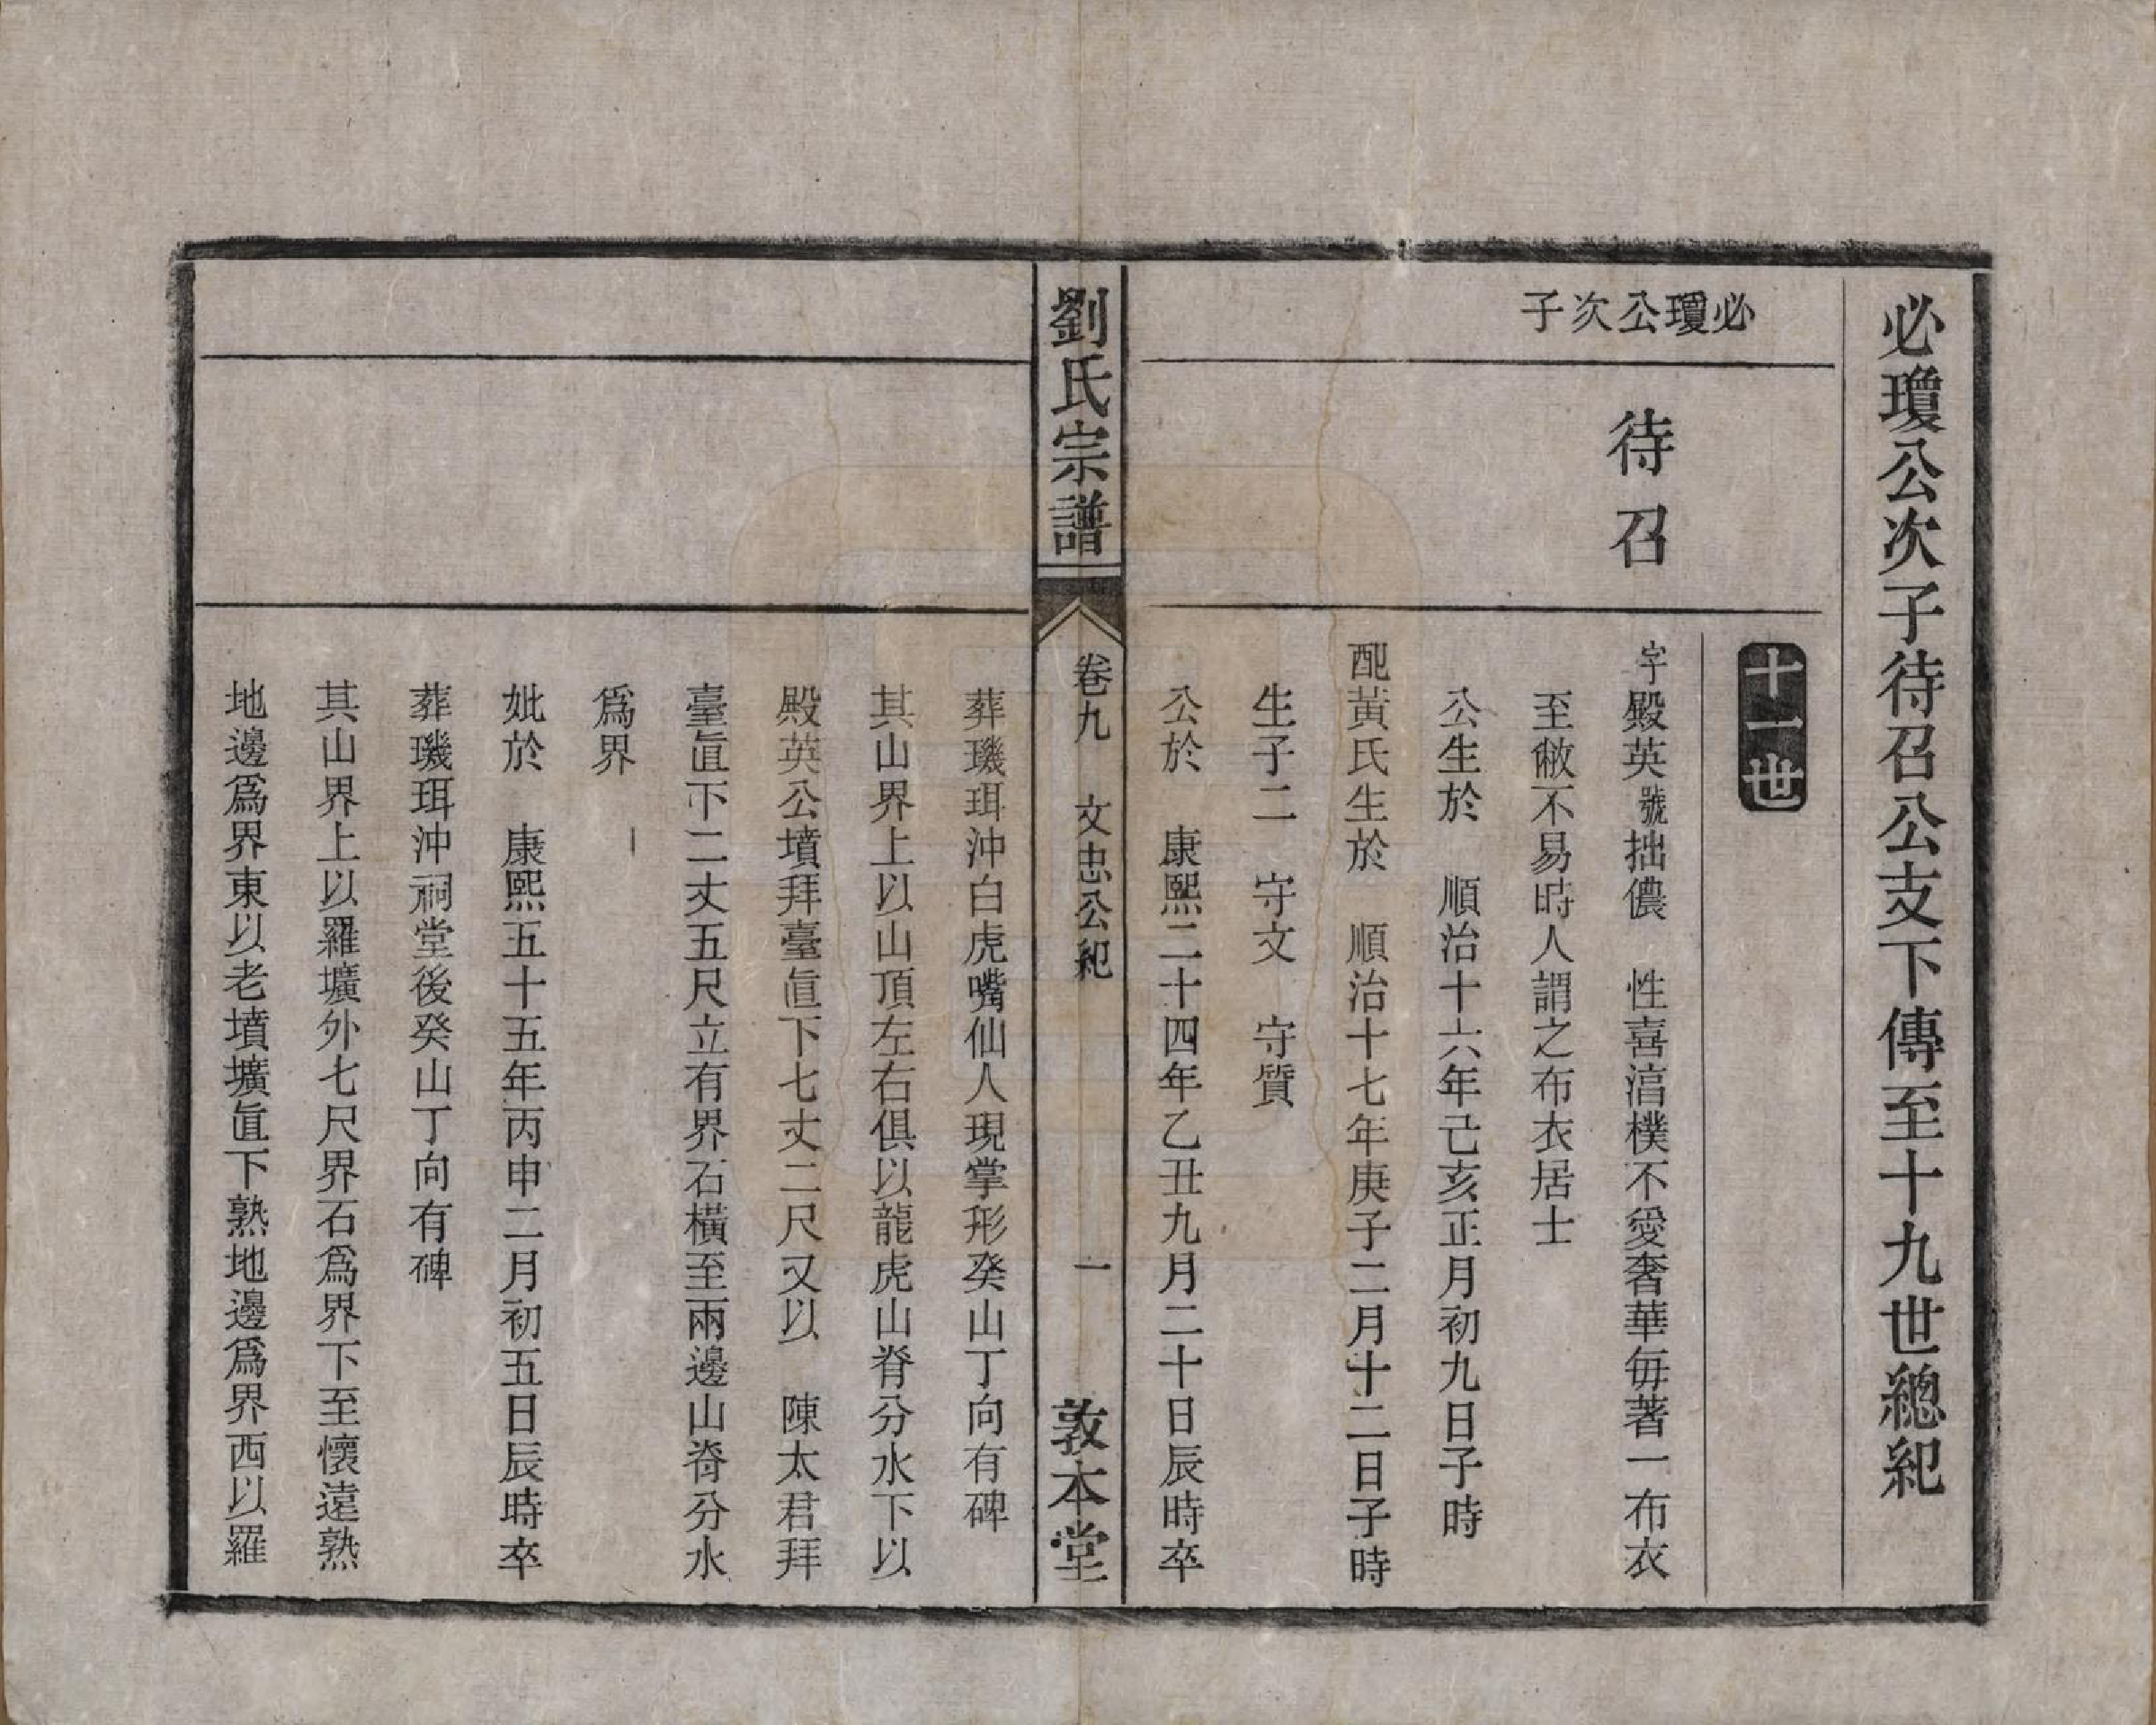 必瓊公次子待召公支下傳至十九世總紀
十一世
必瓊公次子
待召
字殿英號拙儂　性喜湻樸不愛奢華毎著一布衣
至敝不易時人謂之布衣居士
公生於　順治十六年己亥正月初九日子時
配黃氏生於　順治十七年庚子二月十二日子時
生子二　守文　守質
公於　康熙二十四年乙丑九月二十日辰時卒
劉氏宗譜
卷九　文忠公紀
一
敦本堂
葬璣珥沖白虎嘴仙人現掌形癸山丁向有碑
其山界上以山頂左右俱以龍虎山脊分水下以
殿英公墳拜臺直下七丈二尺又以　陳太君拜
臺直下二丈五尺立有界石橫至兩邊山脊分水
爲界
妣於　康熙五十五年丙申二月初五日辰時卒
葬璣珥沖祠堂後癸山丁向有碑
其山界上以羅壙外七尺界石爲界下至懷遠熟
地邊爲界東以老墳壙直下熟地邊爲界西以羅